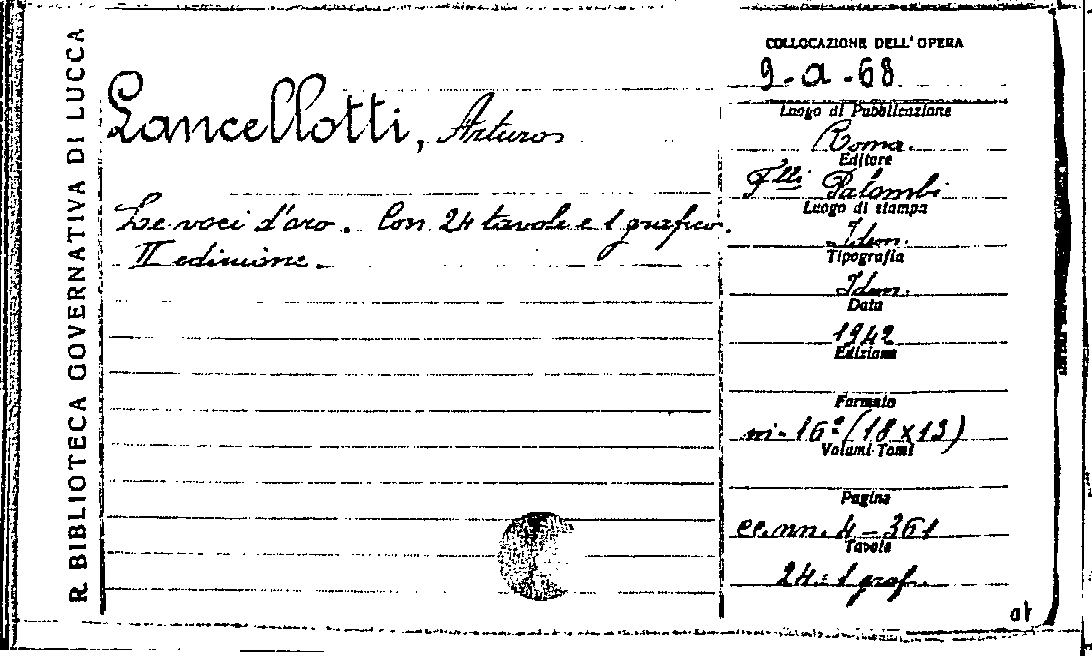 R. BIBLIOTECA GOVERNATIVA DI LUCCA
Lancellotti, Arturo
Le voci d'oro. Con 24 tavole e 1 grafico.
II edizione.
COLLOCAZIONE DELL'OPERA
9-a-68
Luogo di Pubblicazione
Roma.
Editore
F.lli Palombi
Luogo di stampa
Idem.
Tipografia
Idem.
Data
1942
Edizione
Formato
in-16º (18x13)
Volumi-Tomi
Pagine
cc.nn. 4-361
Tavole
24-1 graf.
at